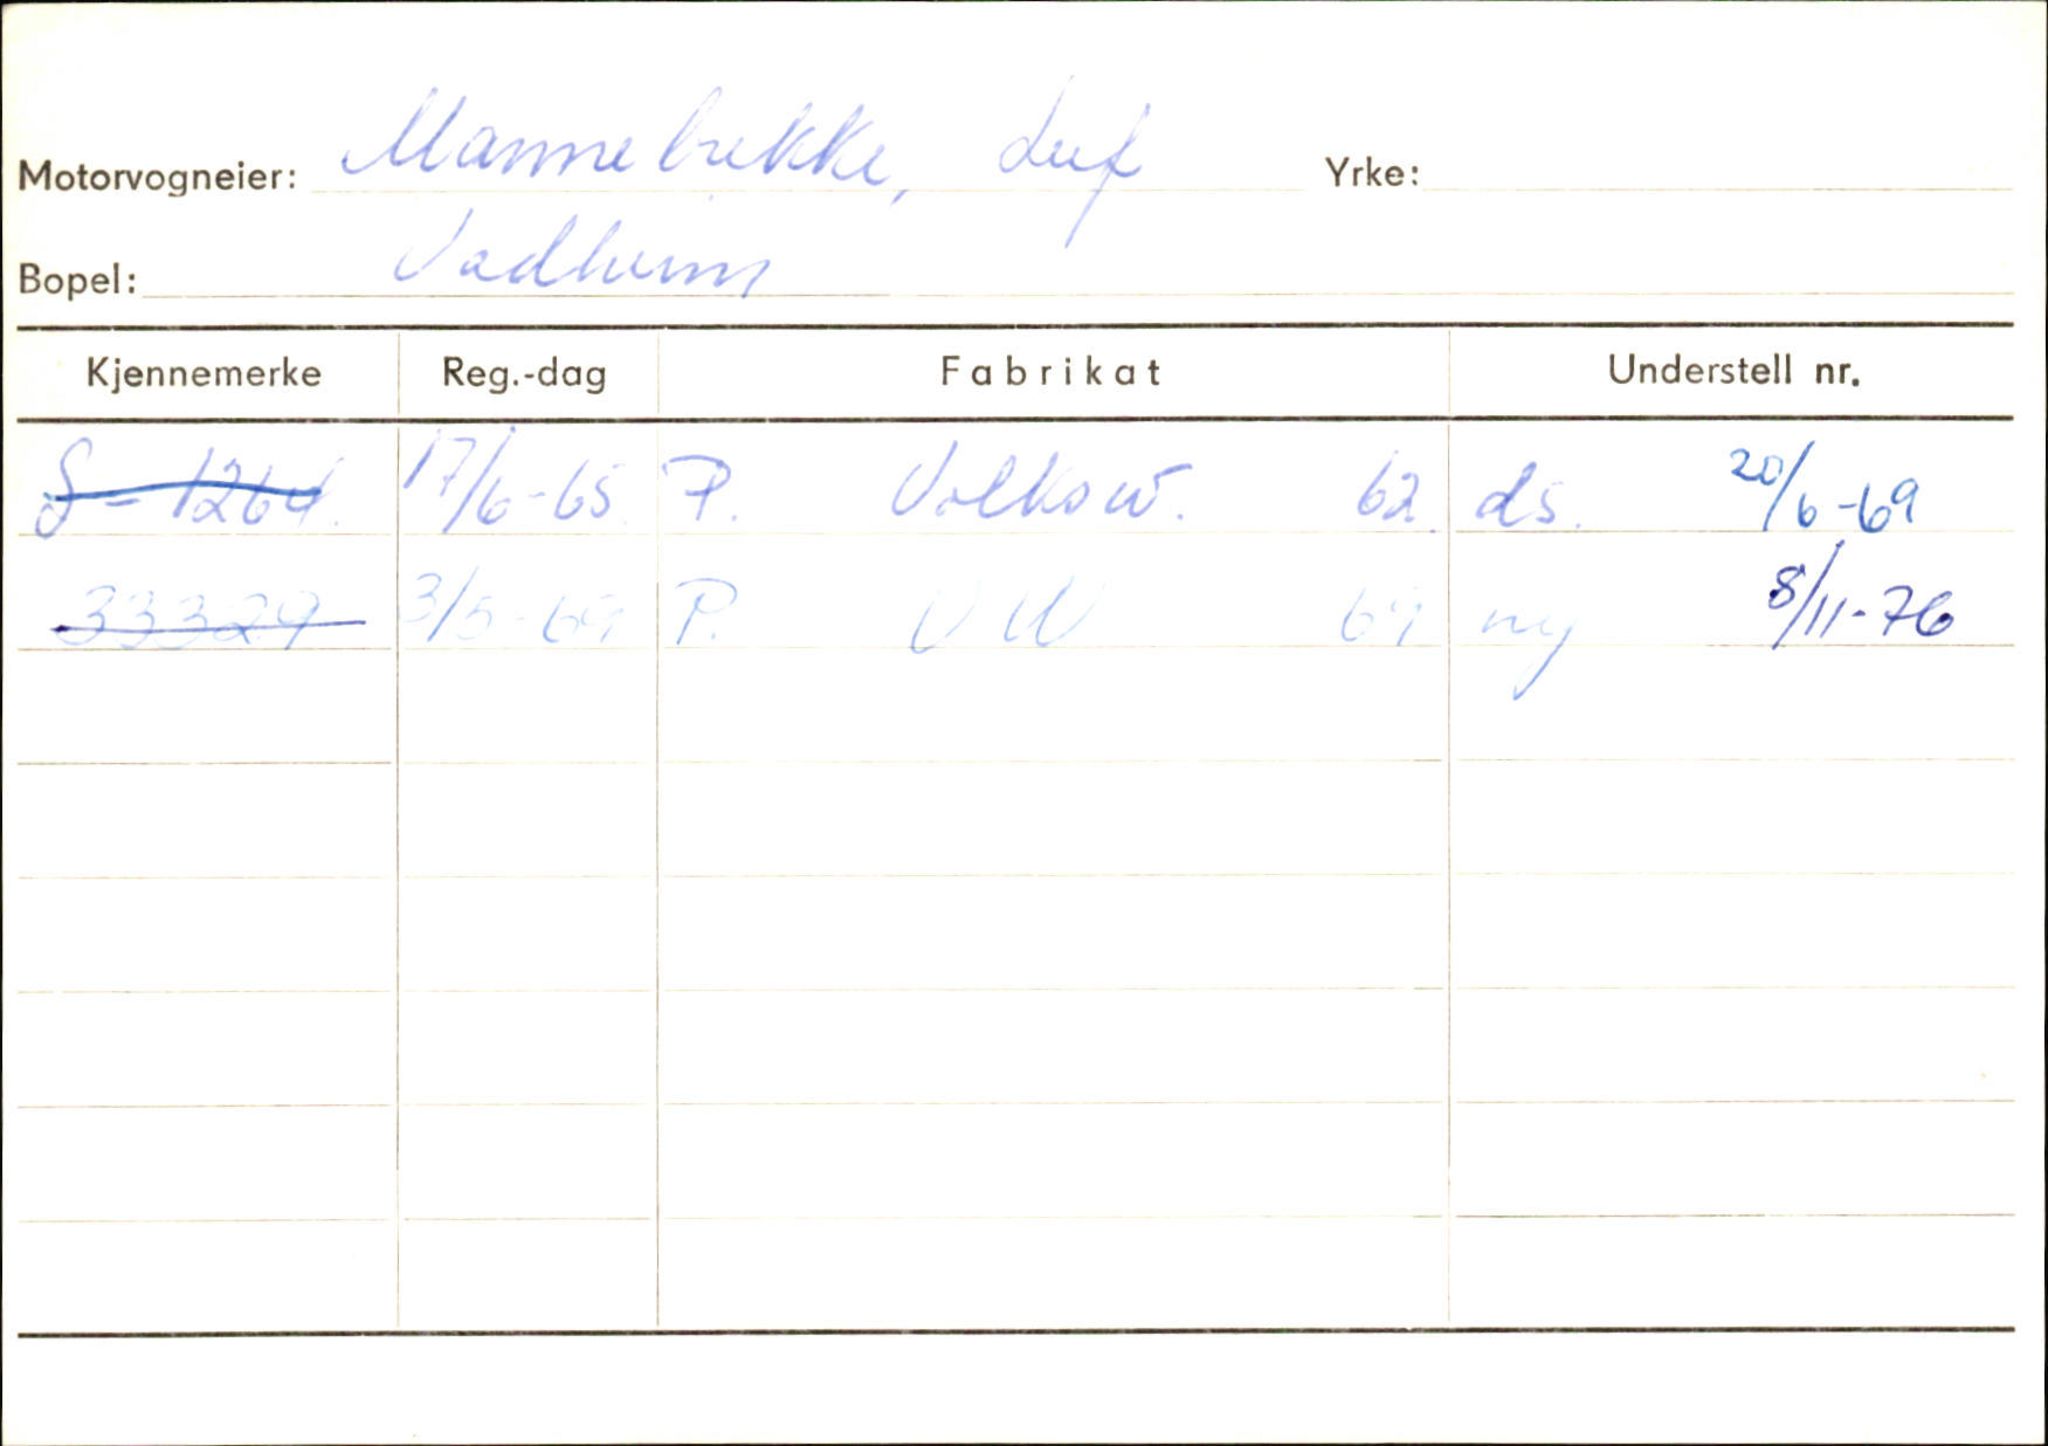 Motorvogneier: Mannebekke, Leif Yrke:
Bopel: Vadheim
Kjennemerke Reg.-dag Fabrikat Understell nr.
S-1264. 17/6-65. P. Volksw. 62. ds. 20/6-69
33329 3/5-69 P. VW 69 ny 8/11-76